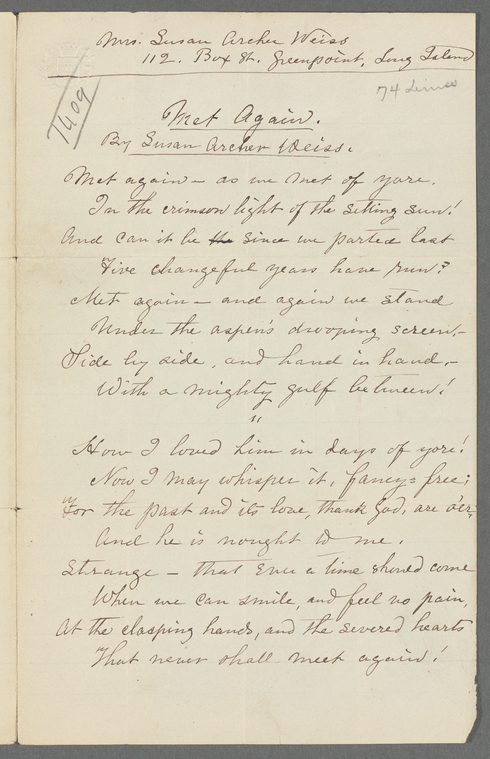 Mrs. Susan Archer Weiss
112. Box St. Greenpoint, Long Island
74 Lines
1409
Met Again.
By Susan Archer Weiss.
Met again – as we met of yore.
In the crimson light of the setting sun!
And can it be the since we parted last
Five changeful years have run?
Met again – and again we stand
Under the aspen's drooping screen, –
Side by side, and hand in hand, –
With a mighty gulf between!
"
How I loved him in days of yore!
Now I may whisper it, fancy=free;
For the past and its love, thank God, are o'er,
And he is nought to me.
Strange – that ever a time should come
When we can smile, and feel no pain,
At the clasping hands, and the severed hearts
That never shall meet again!